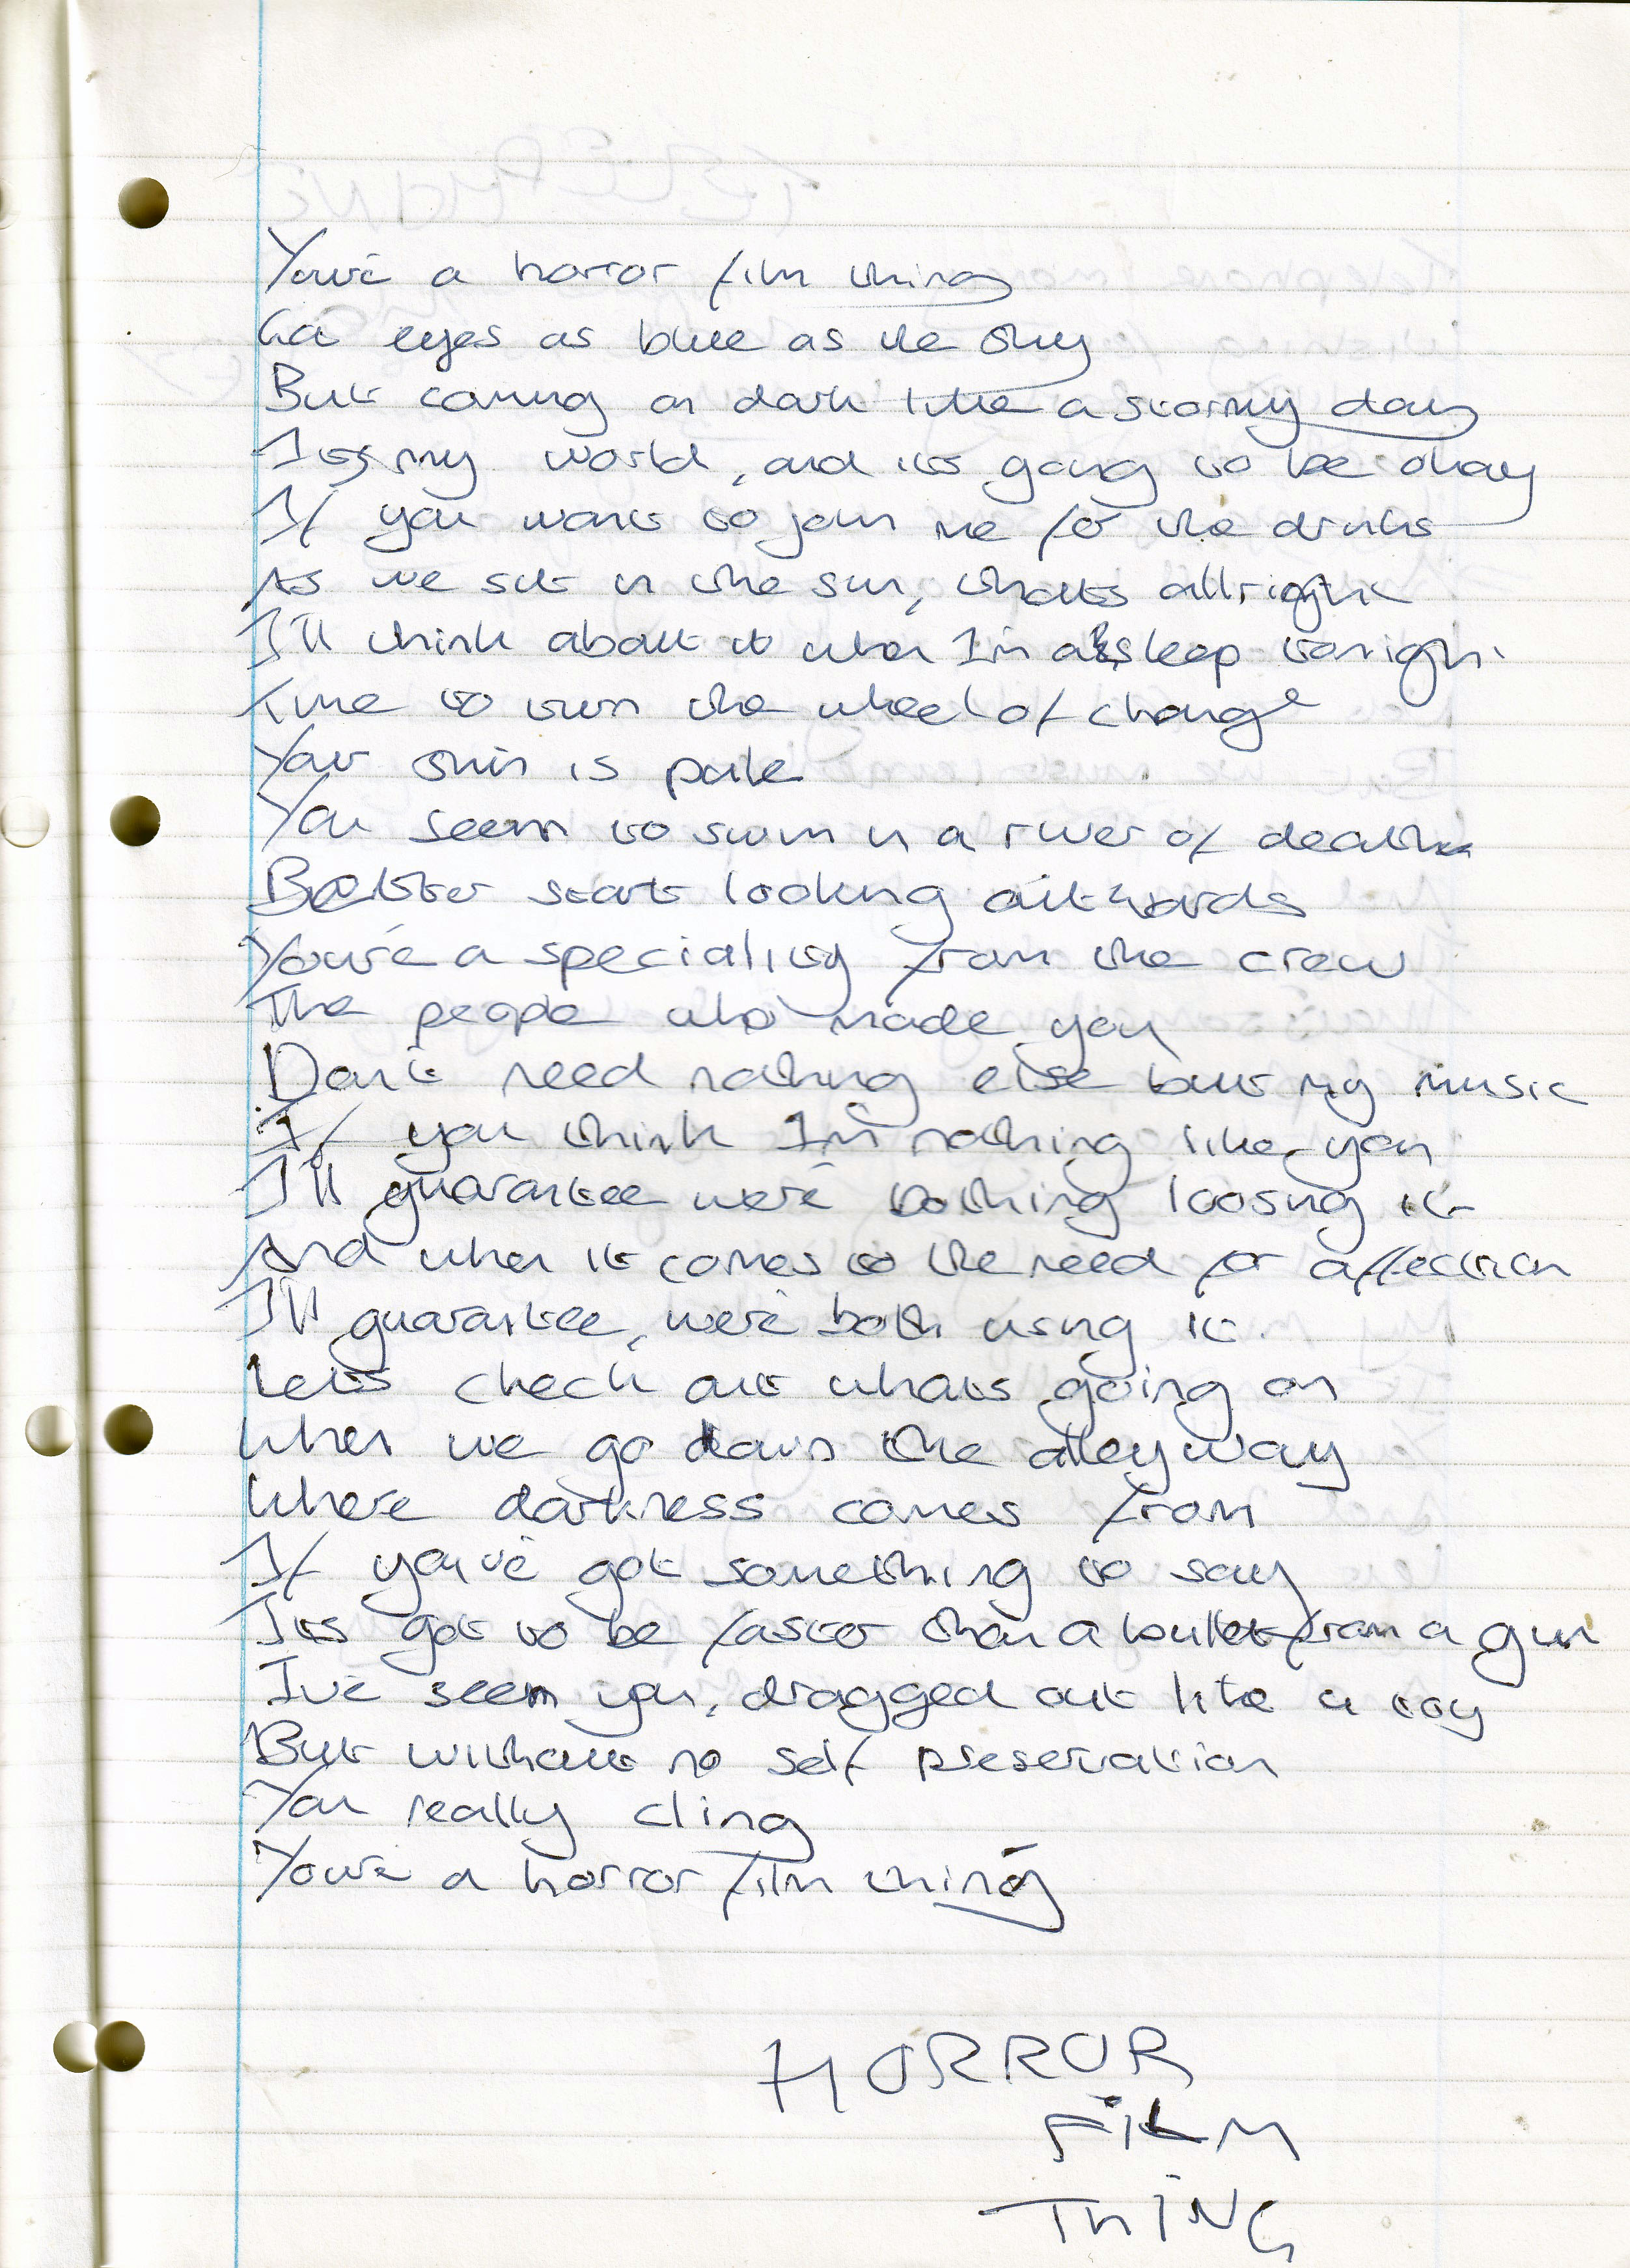 You're a horror film thing
Got eyes as blue as the sky
But coming on dark like a stormy day
Its my world, and its going to be okay
If you want to join me for the drinks
As we sit in the sun, thats allright
I'll think about it when I'm asleep tonight
Time to turn the wheel of change
Your skin is pale
You seem to swim in a river of death
Better start looking outwards
You're a speciality from the crew
The people who made you
Don't need nothing else but my music
If you think I'm nothing like you
I'll guarantee we're bothing loosing it
And when it comes to the need for affection
I'll guarantee, we're both using it.
Lets check out whats going on
When we go down the alleyway
Where darkness comes from
If you've got something to say
Its got to be faster than a bullet from a gun
I've seen you, dragged out like a toy
But without no self preservation
You really cling
You're a horror film thing
HORROR
FILM
THING